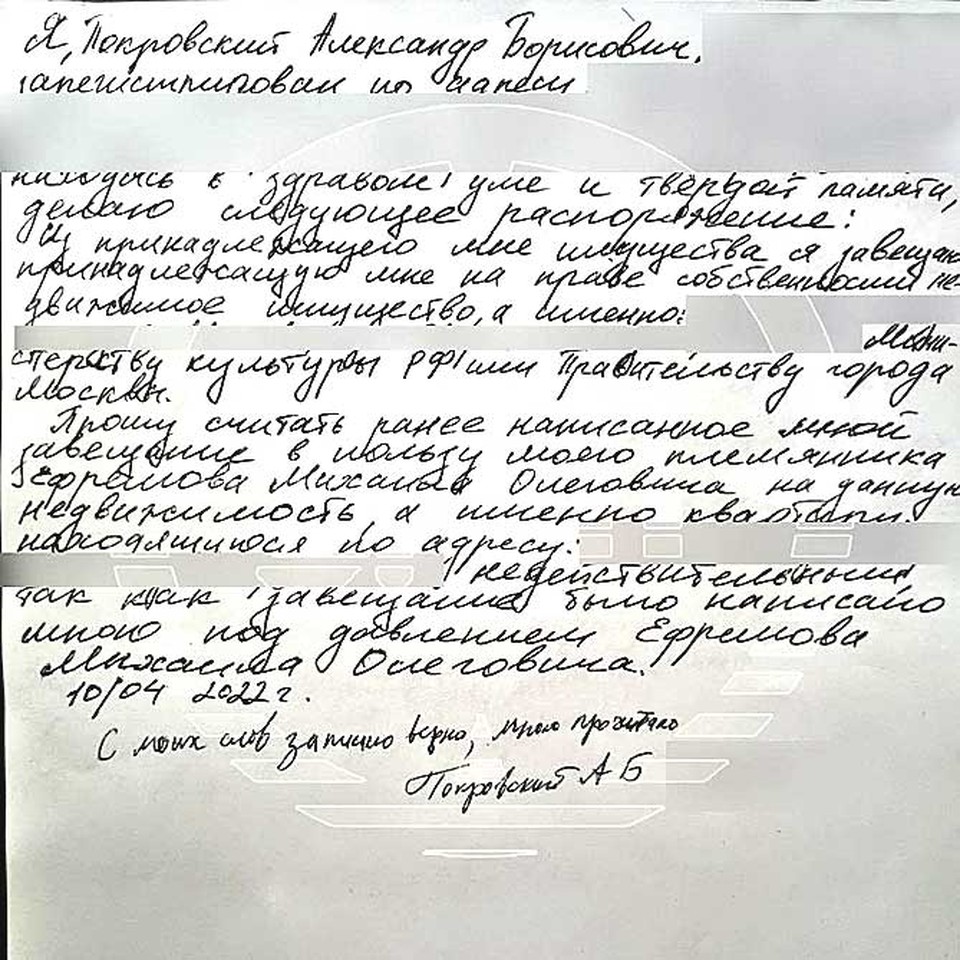 Я, Покровский Александр Борисович,
зарегистрирован по адресу
находясь в здравом уме и твёрдой памяти,
делаю следующее распоряжение:
Из принадлежащего мне имущества я завещаю
принадлежащую мне на праве собственности не-
движимое имущество, а именно:
Мини-
стерству культуры РФ или Правительству города
Москвы.
Прошу считать ранее написанное мной
завещание в пользу моего племянника
Ефремова Михаила Олеговича на данную
недвижимость, а именно квартиру.
находящуюся по адресу:
недействительным,
так как завещание было написано
мною под давлением Ефремова
Михаила Олеговича.
10/04 2022 г.
С моих слов записано верно, мною прочитано
Покровский А Б